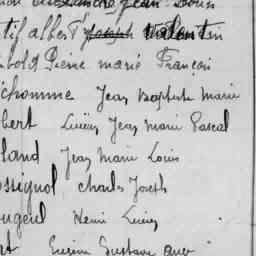 Jean Louis
tif albert Joseph Valentin
bold Pierre marie François
chomme Jean Baptiste Marie
bert Lucien Jean Marie Pascal
land Jean Marie Louis
ssignol charles Joseph
ugeul Henri Lucien
rt Eugène Gustave